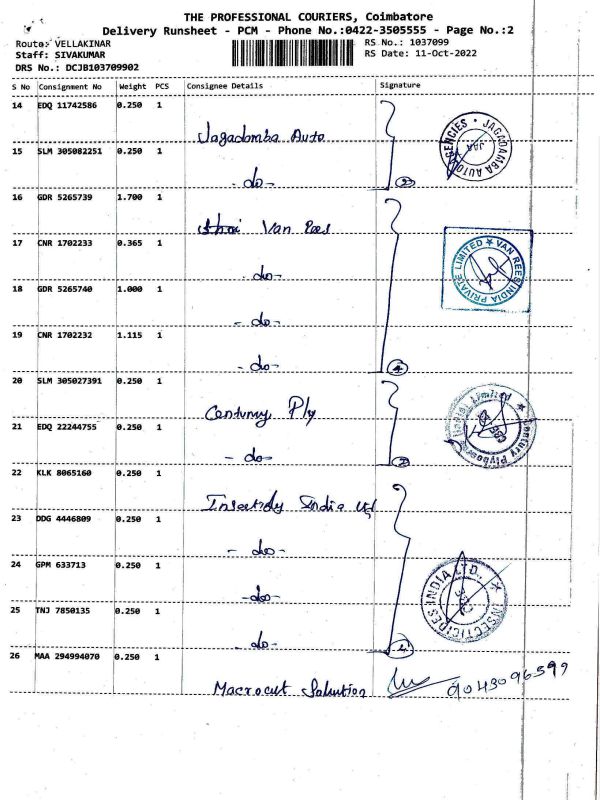 THE PROFESSIONAL COURIERS, Coimbatore
Delivery Runsheet - PCM - Phone No.:0422-3505555 - Page No.:2
Route: VELLAKINAR
Staff: SIVAKUMAR
DRS No.: DCJB103709902
RS No.: 1037099
RS Date: 11-Oct-2022
S No Consignment No Weight PCS Consignee Details Signature
14 EDQ 11742586 0.250 1
Jagadamba Auto
15 SLM 305082251 0.250 1
- do - 2
JAGADAMBA AUTO AGENCIES
JAA
16 GDR 5265739 1.700 1
Van Rees
17 CNR 1702233 0.365 1
- do -
18 GDR 5265740 1.000 1
- do -
19 CNR 1702232 1.115 1
- do - 4
VAN REES INDIA PRIVATE LIMITED
20 SLM 305027391 0.250 1
Century Ply
21 EDQ 22244755 0.250 1
- do - 2
Century Plyboards India Limited
22 KLK 8065160 0.250 1
India
23 DDG 4446809 0.250 1
- do -
24 GPM 633713 0.250 1
- do -
25 TNJ 7850135 0.250 1
- do - 4
INSECTICIDES INDIA LTD.,
26 MAA 294994070 0.250 1
Macrocut Solution 9043096599